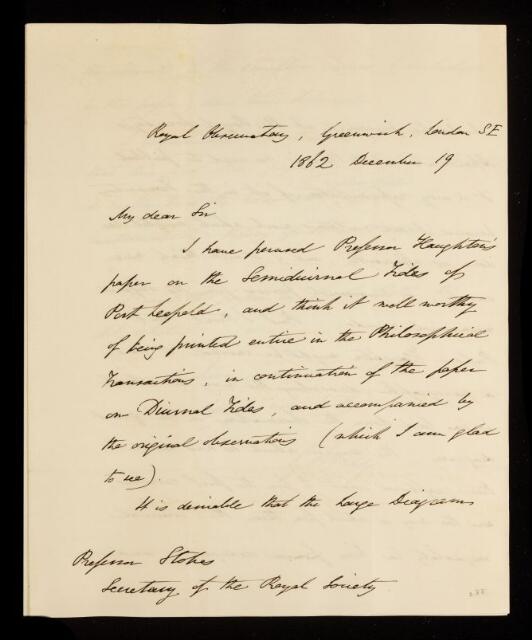 Royal Observatory, Greenwich, London S.E
1862 December 19
My dear Sir
I have perused Professor Haughton's
paper on the Semidiurnal Tides of
Port Leopold, and think it well worthy
of being printed entire in the Philosophical
Transactions, in continuation of the paper
on Diurnal Tides, and accompanied by
the original observations (which I am glad
to see).
It is desirable that the large Diagrams
Professor Stokes
Secretary of the Royal Society